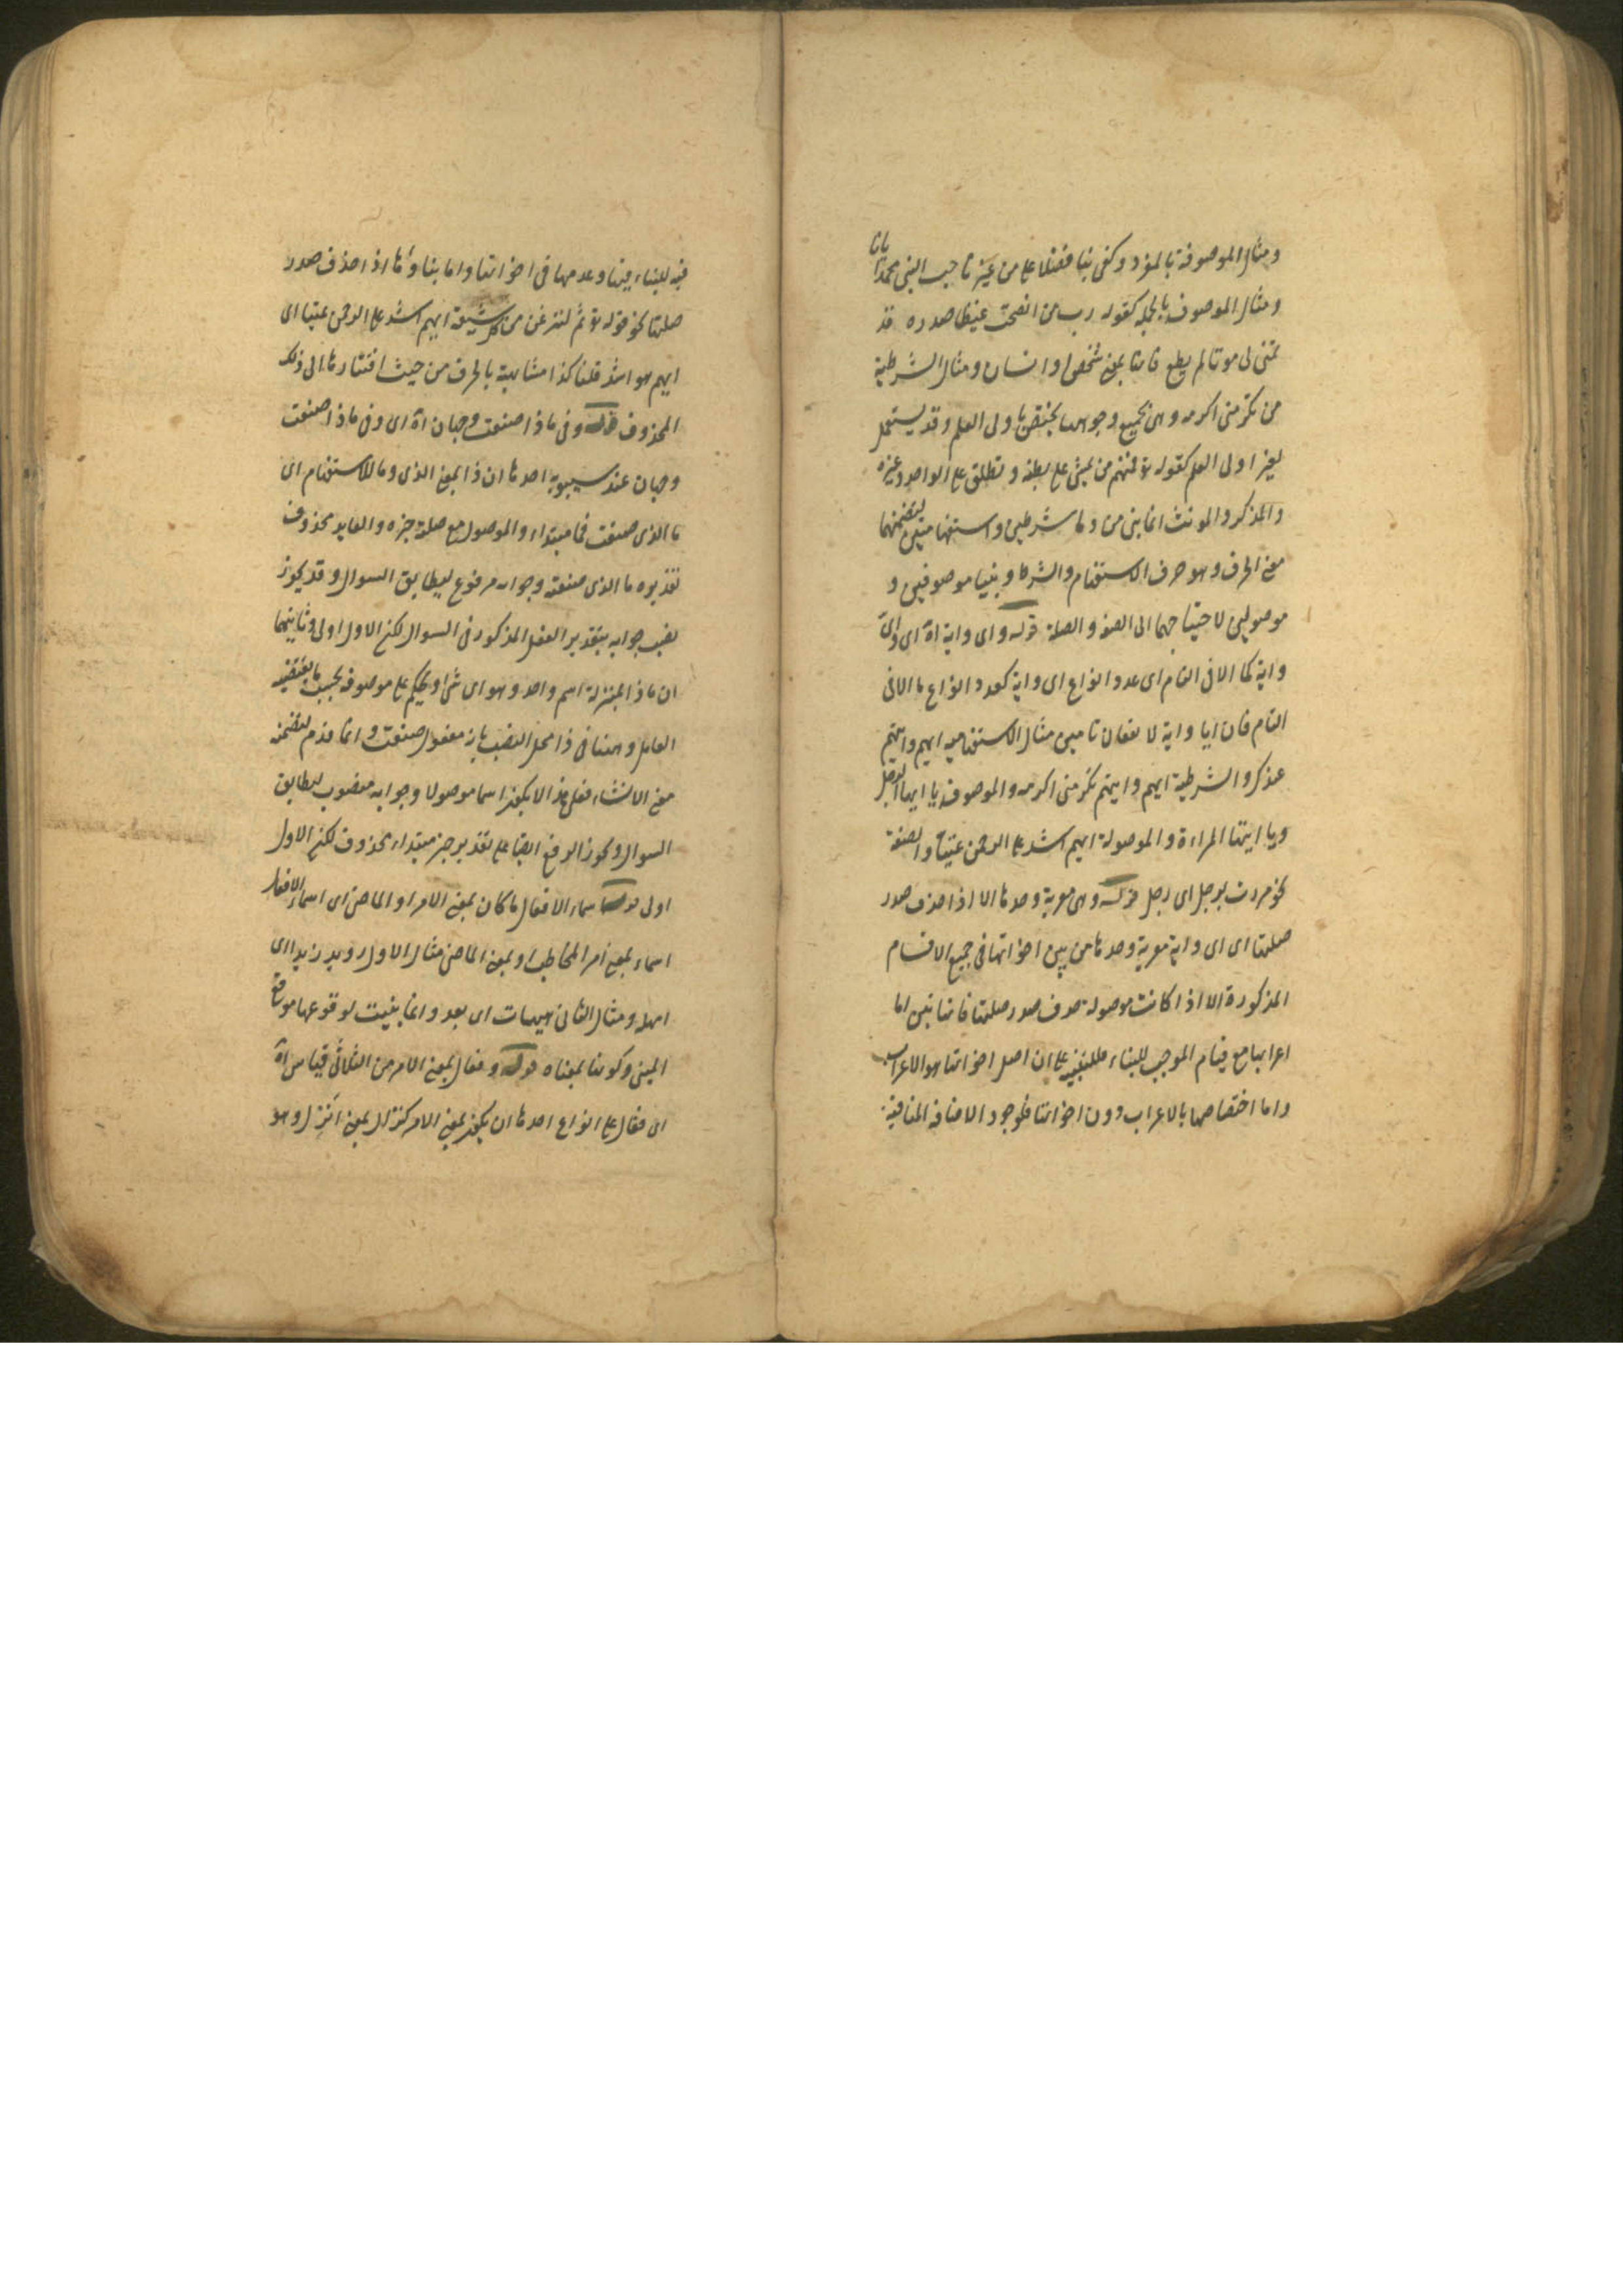 ومثال الموصوفة بالمفرد وكفى بنا فضلا على من غيرنا حب النبي محمد ايانا
ومثال الموصوف بالجملة كقوله رب من انضجت غيظا صدره قد
تمنى لى موتا لم يطع فانها بمعنى شخص او انسان ومثال الشرطية
من تكرمنى اكرمه وهى بجميع وجوهها يختص باولى العلم وقد يستعمل
لغير اولى العلم كقوله تع فمنهم من يمشى على بطنه وتطلق على الواحد وغيره
والمذكر والمونث انما بنى من وما شرطيين واستفهاميتين لتضمنهما
معنى الحرف وهو حرف الاستفهام والشرط وبنيا موصوفين و
موصولين لاحتياجهما الى الصفة والصلة قوله واى واية اه اى واى
واية كما الا فى التام اى عدد انواع اى واية كعدد انواع ما الا فى
التام فان ايا واية لا تقعان تامين مثال الاستفهامية ايهم وايتهم
عندك والشرطية ايهم وايتهم تكرمنى اكرمه والموصوفة يا ايها الرجل
ويا ايتها المراءة والموصولة ايهم اشد على الرحمن عتيا والصفة
نحو مررت برجل اى رجل قوله وهى معربة وحدها الا اذا حذف صدر
صلتها اى اى واية معربة وحدها من بين اخواتها فى جميع الاقسام
المذكورة الا اذا كانت موصولة حذف صدر صلتها فانها تبنى اما
اعرابها مع قيام الموجب للبناء فللتنبيه على ان اصل اخواتها هو الاعراب
واما اختصاصها بالاعراب دون اخواتها فلوجود الاضافة المنافية
فيه للبناء فيها وعدمها فى اخواتها واما بناوها اذا حذف صدر
صلتها نحو قوله تع ثم لننزعن من كل شيعة ايهم اشد على الرحمن عتيا اى
ايهم هو اشد فلتاكد مشابهة بالحرف من حيث افتقارها الى ذلك
المحذوف قوله وفى ماذا صنعت وجهان اه اى وفى ماذا صنعت
وجهان عند سيبويه احدها ان ذا بمعنى الذى وما للاستفهام اى
ما الذى صنعت فما مبتداء والموصول مع صلته خبره والعايد محذوف
تقديره ما الذى صنعته وجوابه مرفوع ليطابق السوال وقد يجوز
نصب جوابه بتقدير الفعل المذكور فى السوال لكن الاول اولى وثانيهما
ان ماذا بمنزلة اسم واحد وهو اى شى ويحكم على موصوفه بحسب ما يقتضيه
العامل وههنا فى ذا محل النصب بانه مفعول صنعت وانما قدم لتضمنه
معنى الانشاء فعلى هذا لا يكون اسما موصولا وجوابه منصوب ليطابق
السوال ويجوز الرفع ايضا على تقدير خبر مبتداء محذوف لكن الاول
اولى قوله اسماء الافعال ما كان بمعنى الامر او الماضى اى اسماء الافعال
اسماء بمعنى امر المخاطب او بمعنى الماضى مثال الاول رويد زيدا اى
امهله ومثال الثانى هيهات اى بعد وانما بنيت لوقوعها موقع
المبنى وكونها بمعناه قوله وفعال بمعنى الامر من الثلاثى قياس اه
اى فعال على انواع احدها ان يكون بمعنى الامر كنزال بمعنى انزل وهو